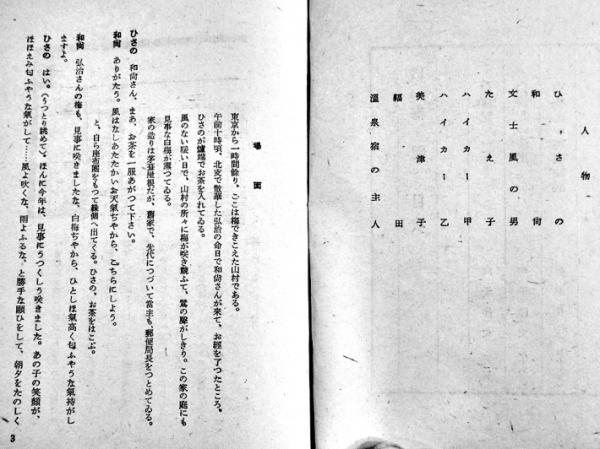 人物
ひさの
和尚
文士風の男
たえ子
ハイカー甲
ハイカー乙
美津子
福田
温泉宿の主人
場面
東京から一時間餘り、ここは梅できこえた山村である。
午前十時頃、北支で散華した弘治の命日で和尚さんが來て、お經を了つたところ。
ひさのが爐端でお茶を入れてゐる。
風のない暖い日で、山村の所々に梅が咲き競ふて、鶯の聲がしきり。この家の庭にも
見事な白梅が滿つてゐる。
家の造りは茅葺屋根だが、舊家で、先代につづいて當主も、郵便局長をつとめてゐる。
ひさの 和尚さん、まあ、お茶を一服あがつて下さい。
和尚 ありがたう。風はなしあたたかいお天氣ぢやから、こちらにしよう。
と、自ら座布團をもつて縁側へ出てくる。ひさの、お茶をはこぶ。
和尚 弘治さんの梅も、見事に咲きましたな、白梅ぢやから、ひとしほ氣高く匂ふやうな氣持がし
ますよ。
ひさの はい。(うつとり眺めて)ほんに今年は、見事にうつくしう咲きました。あの子の笑顏が、
ほほえみ匂ふやうな氣がして……風よ吹くな、雨よふるな、と勝手な願ひをして、朝夕をたのしく
3